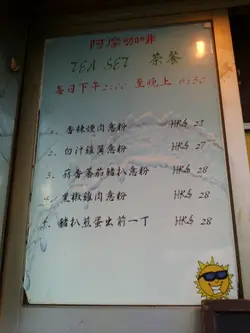 阿摩咖啡
TEA SET 茶餐
每日下午2:00 至晚上 6:30
1. 香辣燻肉意粉 HK$ 25
2. 白汁雞意粉 HK$ 27
3. 蒜香番茄豬扒意粉 HK$ 28
4. 黑椒雞肉意粉 HK$ 28
5. 豬扒煎蛋出前一丁 HK$ 28